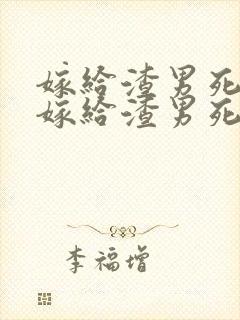 嫁给渣男死
嫁给渣男死
李福增